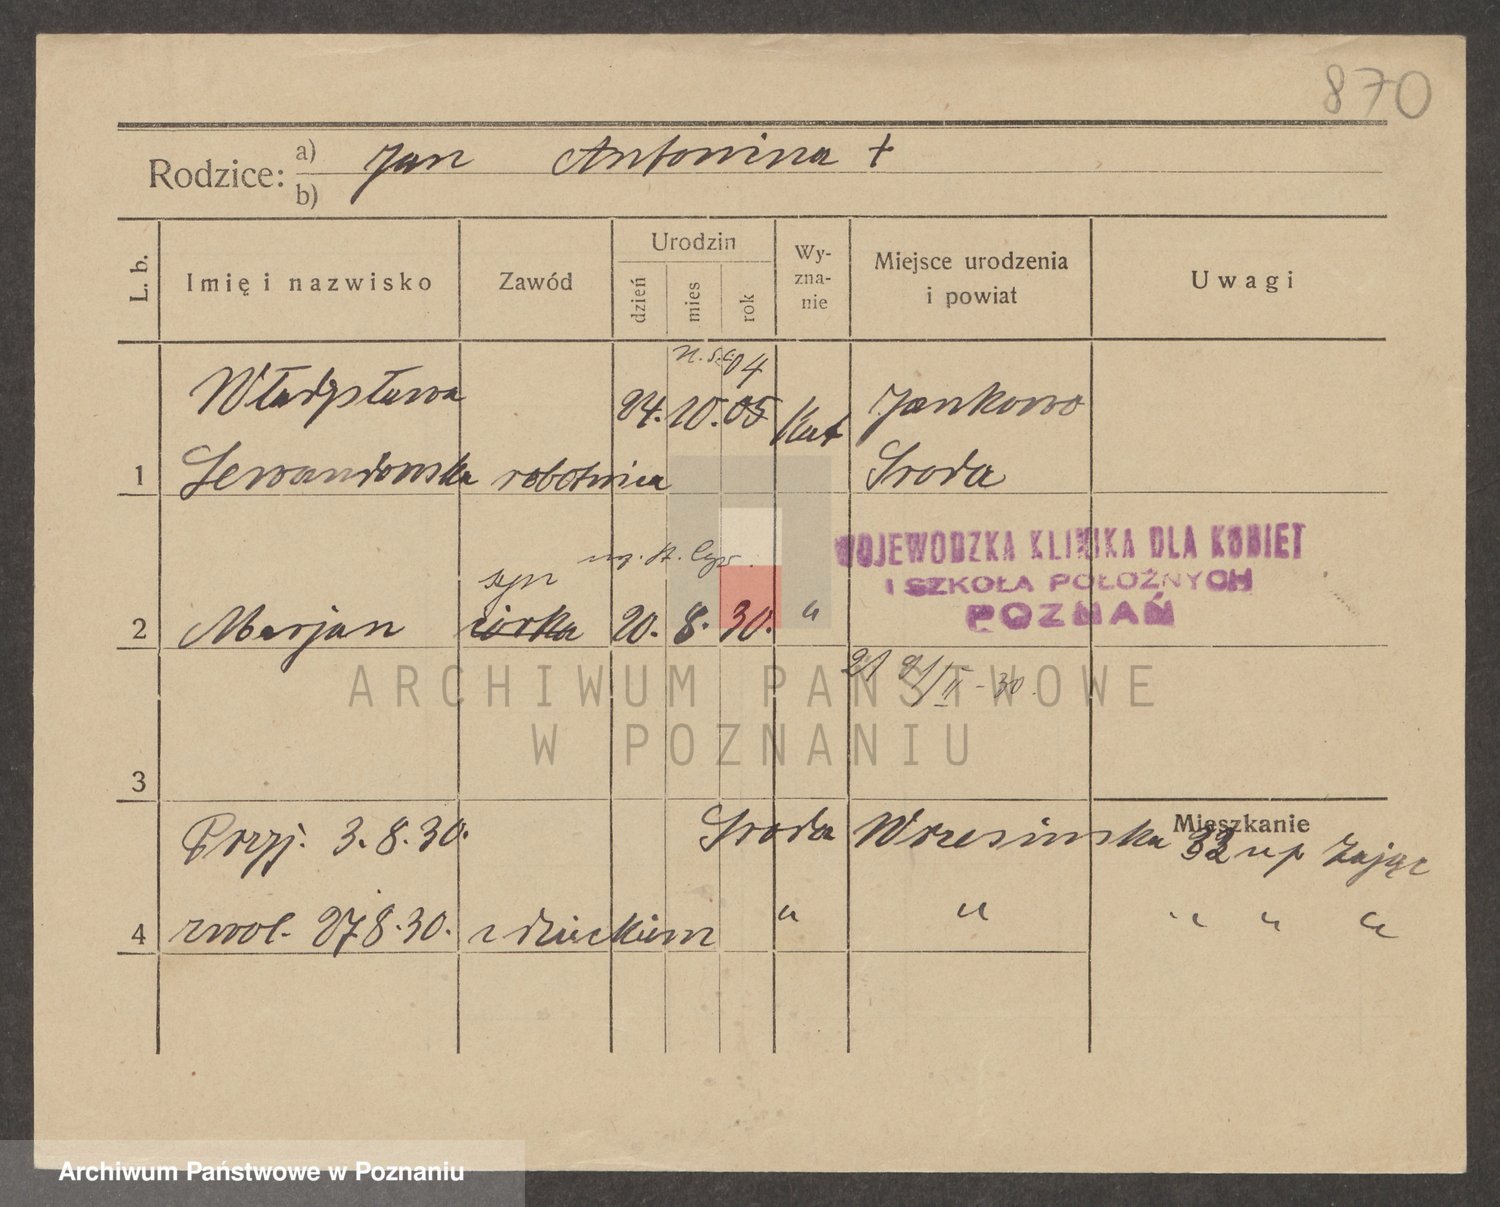 870
Rodzice: a) Jan Antonina +
b)
L. b.
Imię i nazwisko
Zawód
Urodzin
dzień
mies
rok
Wy-
zna-
nie
Miejsce urodzenia
i powiat
Uwagi
04
Władysława 24. 10. 05 Kat Jankowo
1 Lewandowska robotnica Środa
WOJEWODZKA KLINIKA DLA KOBIET
I SZKOŁA POŁOŻNYCH
POZNAŃ
syn
2 Marjan córka 20. 8. 30. "
ARCHIWUM PAŃSTWOWE
W POZNANIU
3
Mieszkanie
Przyj. 3.8.30. Środa Wrzesinska 32 u p Zając
4 zwol. 27 8.30. z dzieckiem " " " " "
Archiwum Państwowe w Poznaniu